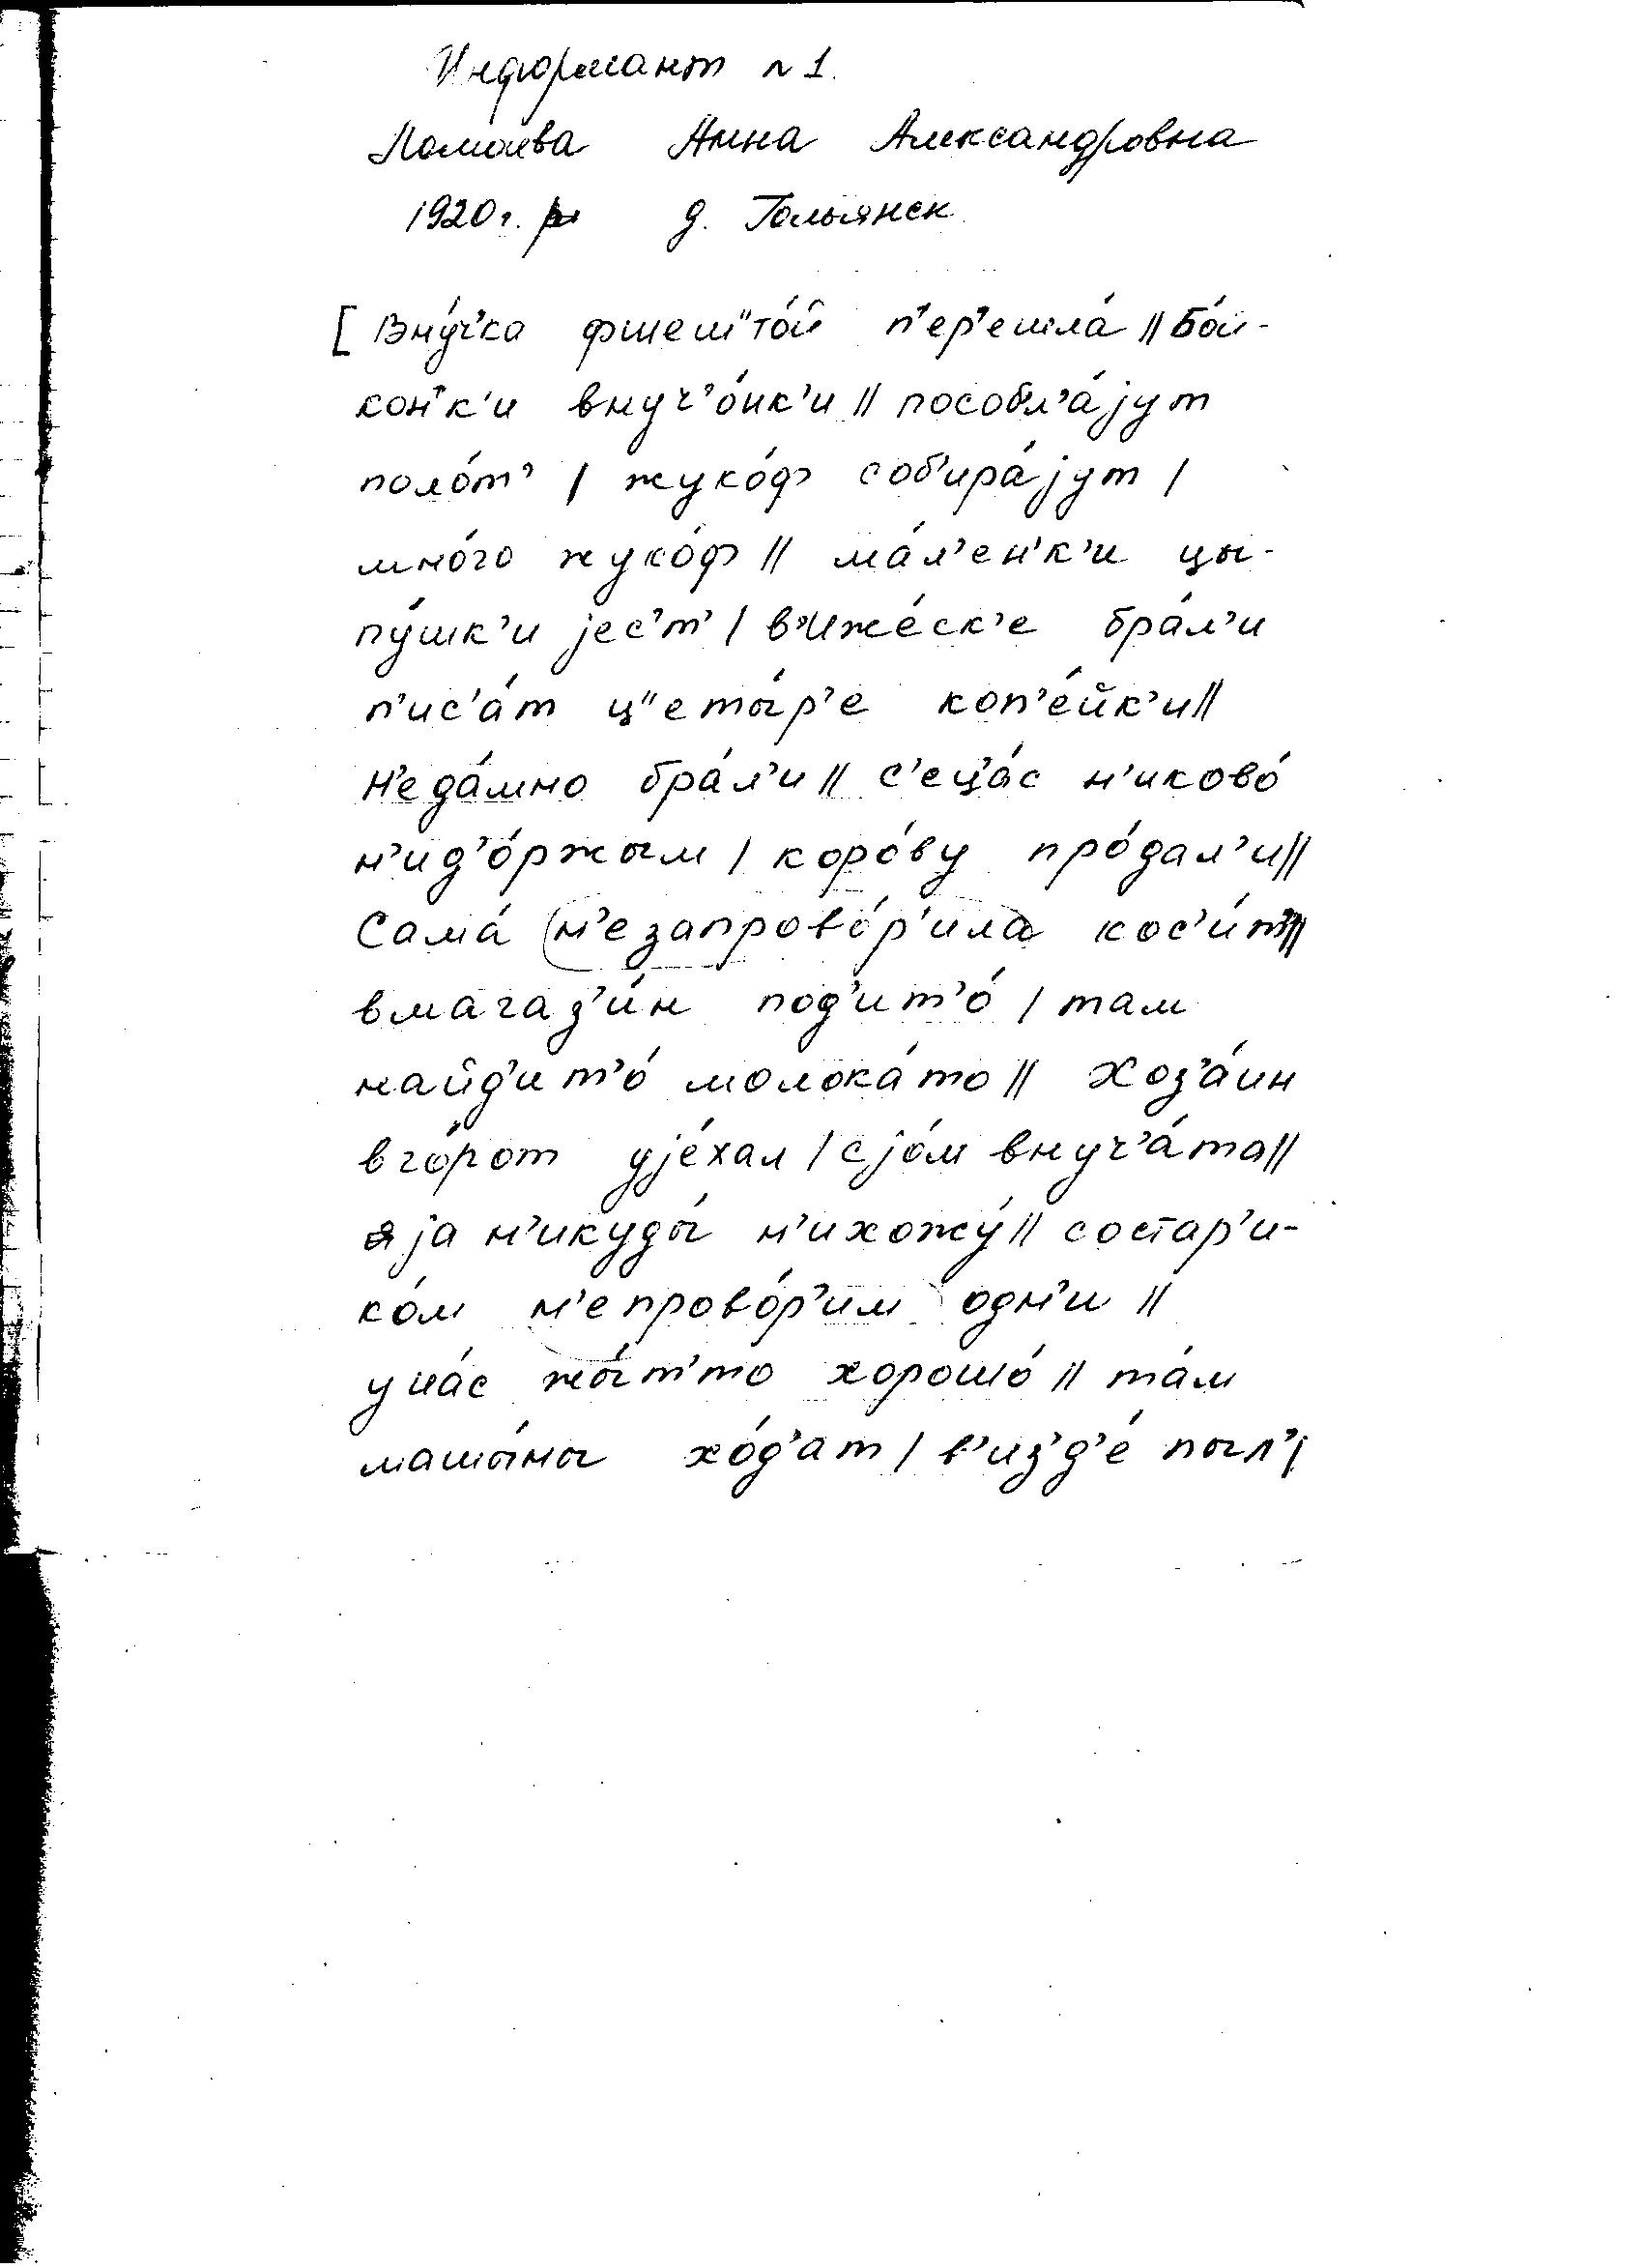 Информант №1.
Ломаева Анна Александровна
1920 г. р. д. Гольянск
[ Вну́ч'ка фшеш"то́й п'ер'ешла́ || Бо́й-
кон'к'и внуч'о́нк'и || пособл'а́јут
поло́т' | жуко́ф соб'ира́јут |
мно́го жуко́ф || ма́л'ен'к'и цы-
пу́шк'и јес'т' | в'иже́ск'е бра́л'и
п'ис'а́т ц"еты́р'е коп'е́йк'и ||
Н'еда́мно бра́л'и || с'ец'а́с н'иково́
н'ид'о́ржым | коро́ву про́дал'и ||
Сама́ н'езапрово́р'ила кос'и́т' ||
вмагаз'и́н под'ит'о́ | там
найд'ит'о́ молока́то || Хоз'а́ин
вго́рот ује́хал | сјо́м внуч'а́та ||
ја н'икуды́ н'ихожу́ || состар'и-
ко́м н'епрово́р'им одн'и ||
уна́с жы́т'то хорошо́ || та́м
машы́ны хо́д'ат | в'из'д'е́ пыл' |